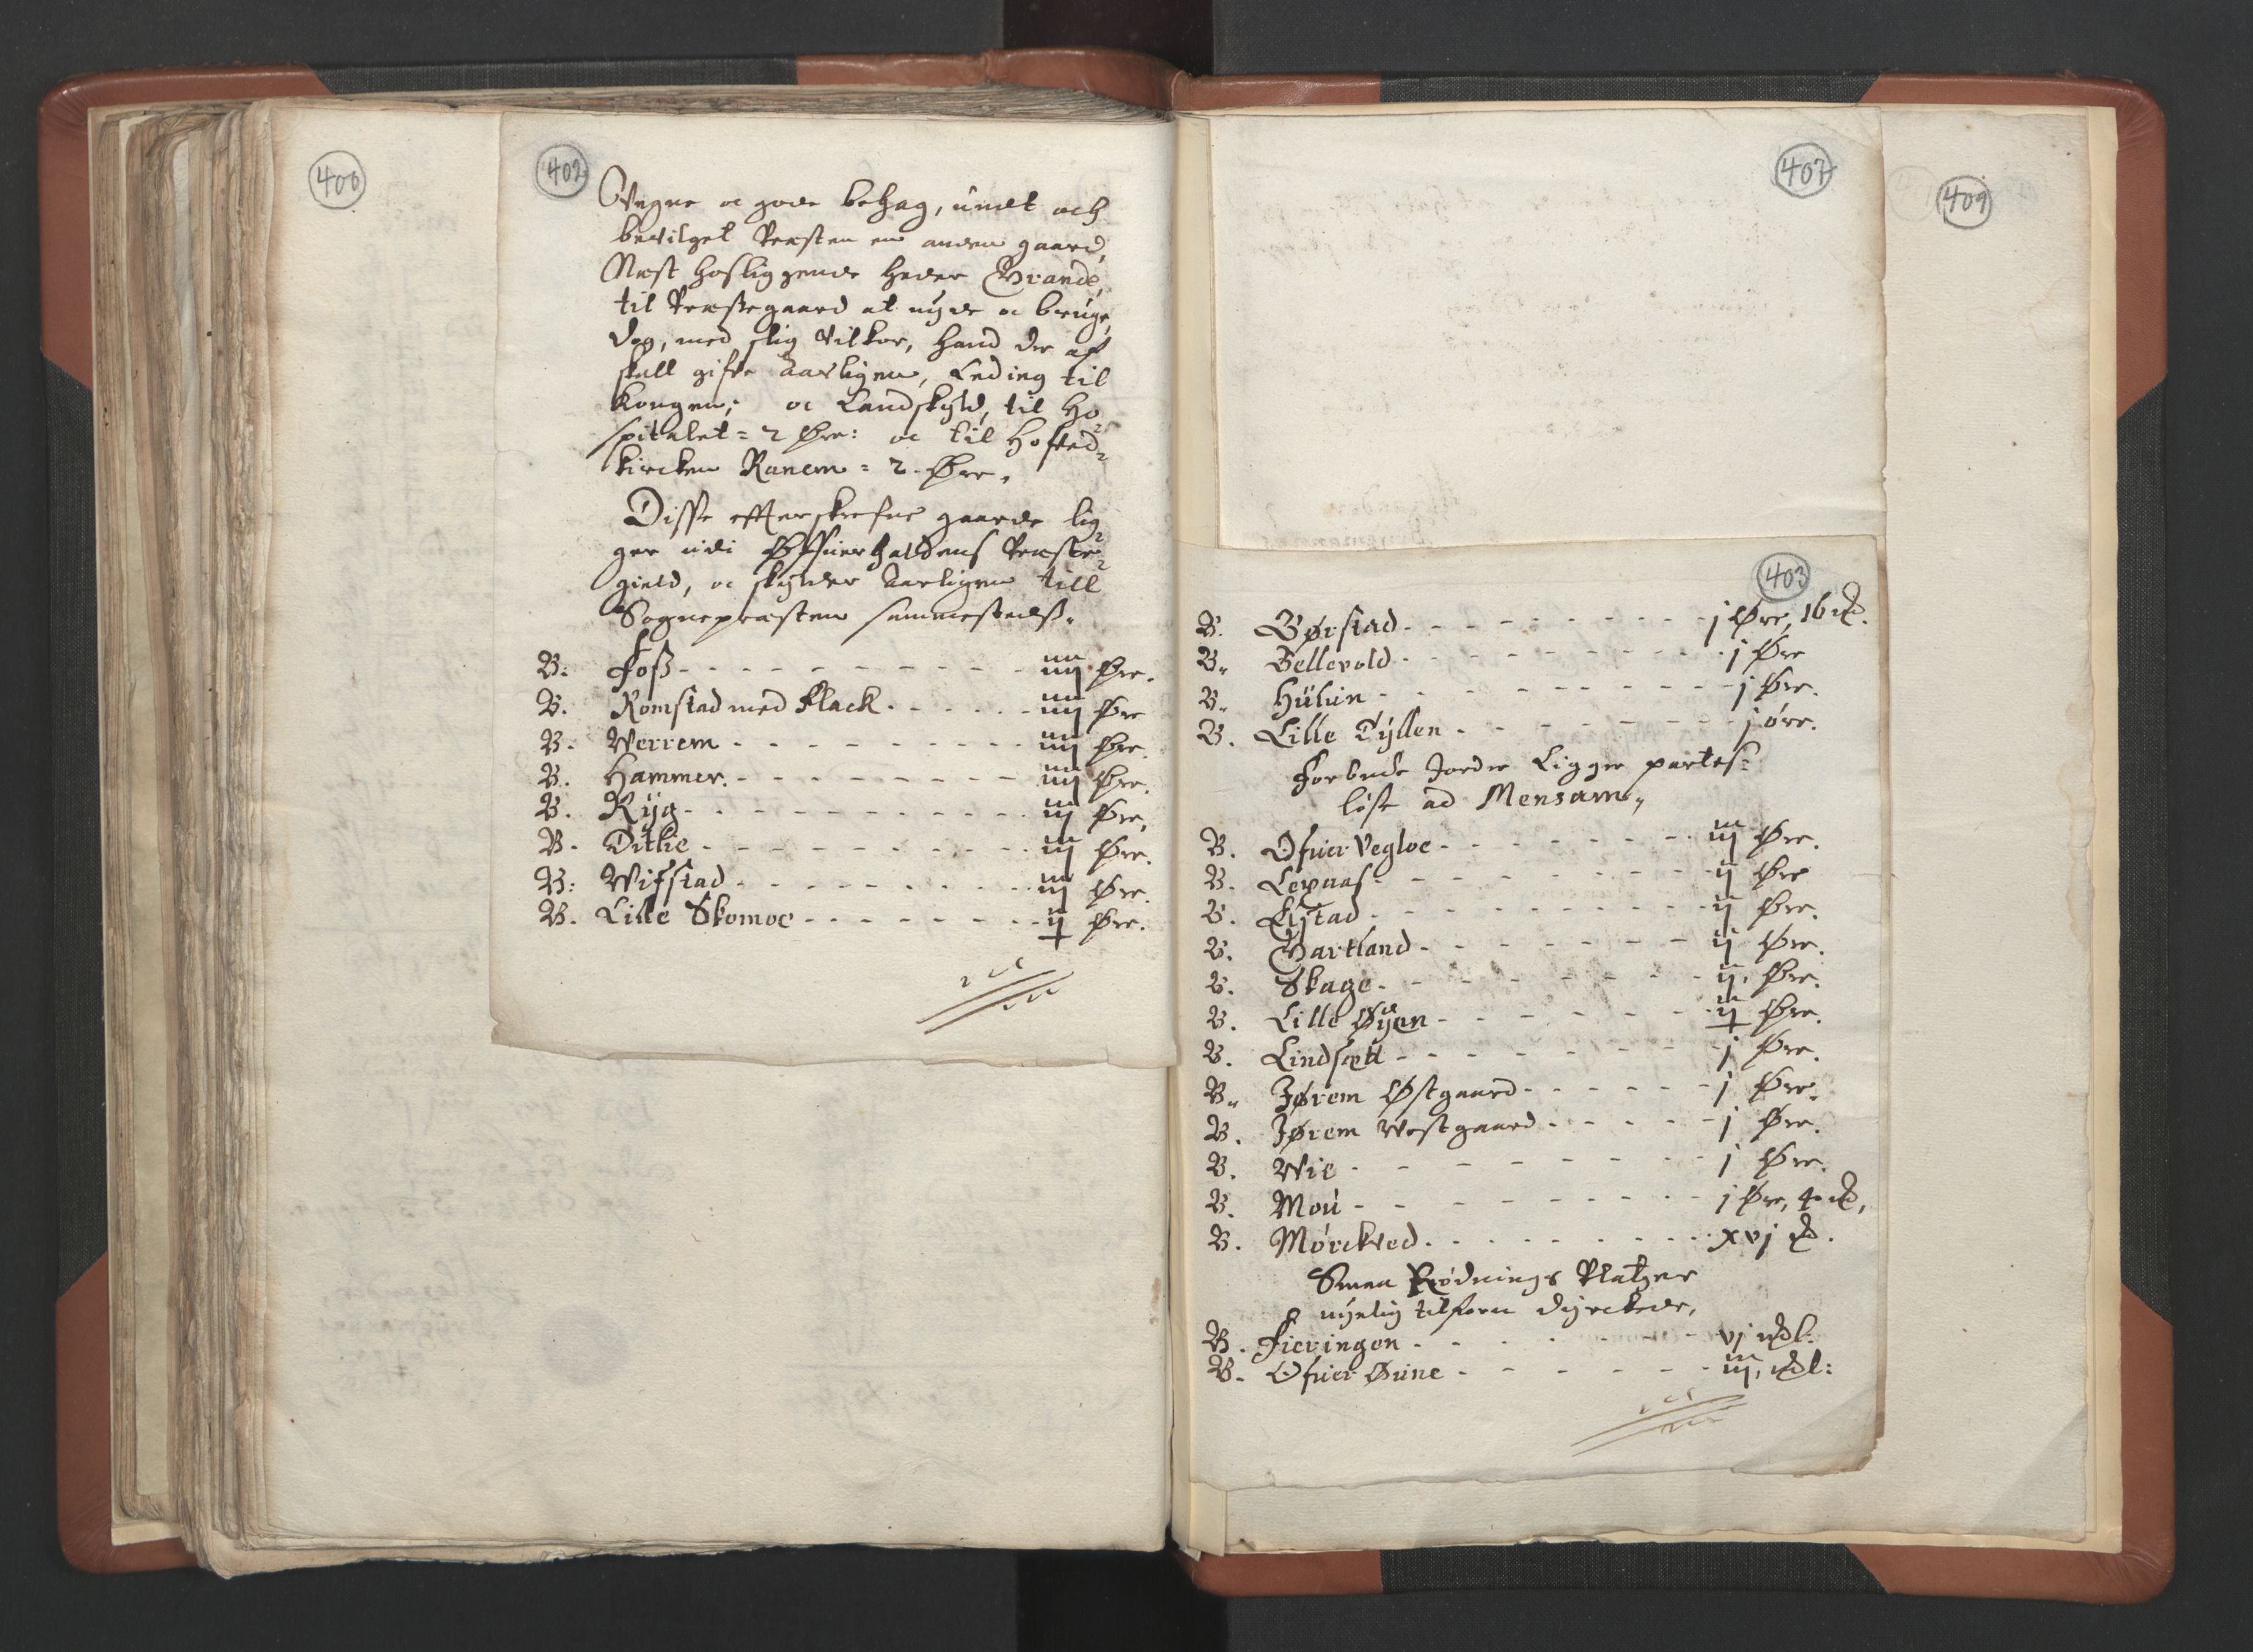 400
402
Vegne oc gode behag, undt och
bevilget Præsten en anden gaard,
Næst hosliggende heder Brande,
til Præstegaard at nyde oc bruge,
dog, med slig Vilkor, hand der af
skall gifve Aarligen, Leding til
Kongen; oc Landskyld, til Ho⸗
spitalet = 2 Øre: oc til Hofved⸗
kircken Ranem = 2 Øre.
Disse effterskrefne gaarde lig⸗
ger udi Offuerhaldens Præste⸗
gield, oc skylder Aarligen till
Sognepræsten sammestedss.
B: Foss - - - - - - - - - - - iiij Øre.
B. Romstad med Flack. - - - - - iiij Øre
B. Werrem - - - - - - - - - iiij Øre.
B. Hammer. - - - - - - - - iiij Øre.
B. Ryg - - - - - - - - - - - iij Øre,
B. Dithe - - - - - - - - - - iij Øre.
B: Wifstad - - - - - - - - - iij Øre.
B. Lille Skomoe - - - - - - - - ij Øre.
407
409
403
B. Børstad - - - - - - - - - j Øre, 16 d.
B. Bellevold - - - - - - - - - j Øre
B. Hülin - - - - - - - - - j Øre.
B. Lille Tyllen - - - - - - - - j øre.
Forbnde Jorder Ligger partes⸗
løse ad Mensam,
B. Ofuer Vegloe - - - - - - - iij Øre.
B. Lepnas - - - - - - - - - ij Øre
B. Lystad - - - - - - - - - - ij Øre.
B. Bartland - - - - - - - ij Øre.
B. Skage - - - - - - - - - ij. Øre.
B. Lille Øyen - - - - - - ij Øre.
B. Lindsætt - - - - - - - - j Øre.
B. Jørem Østgaard - - - - - - j Øre.
B. Jørem Westgaard - - - - - j Øre.
B. Wie - - - - - - - - j Øre.
B. Moü - - - - - - - - - j Øre, 4 d,
B. Mørckved - - - - - - - - - xvj d.
Smaa Rødnings Platzer
nyelig tilforn dyrckede,
B. Fieringen - - - - - - - - vj
B. Ofuer Øüne - - - - - - iij,